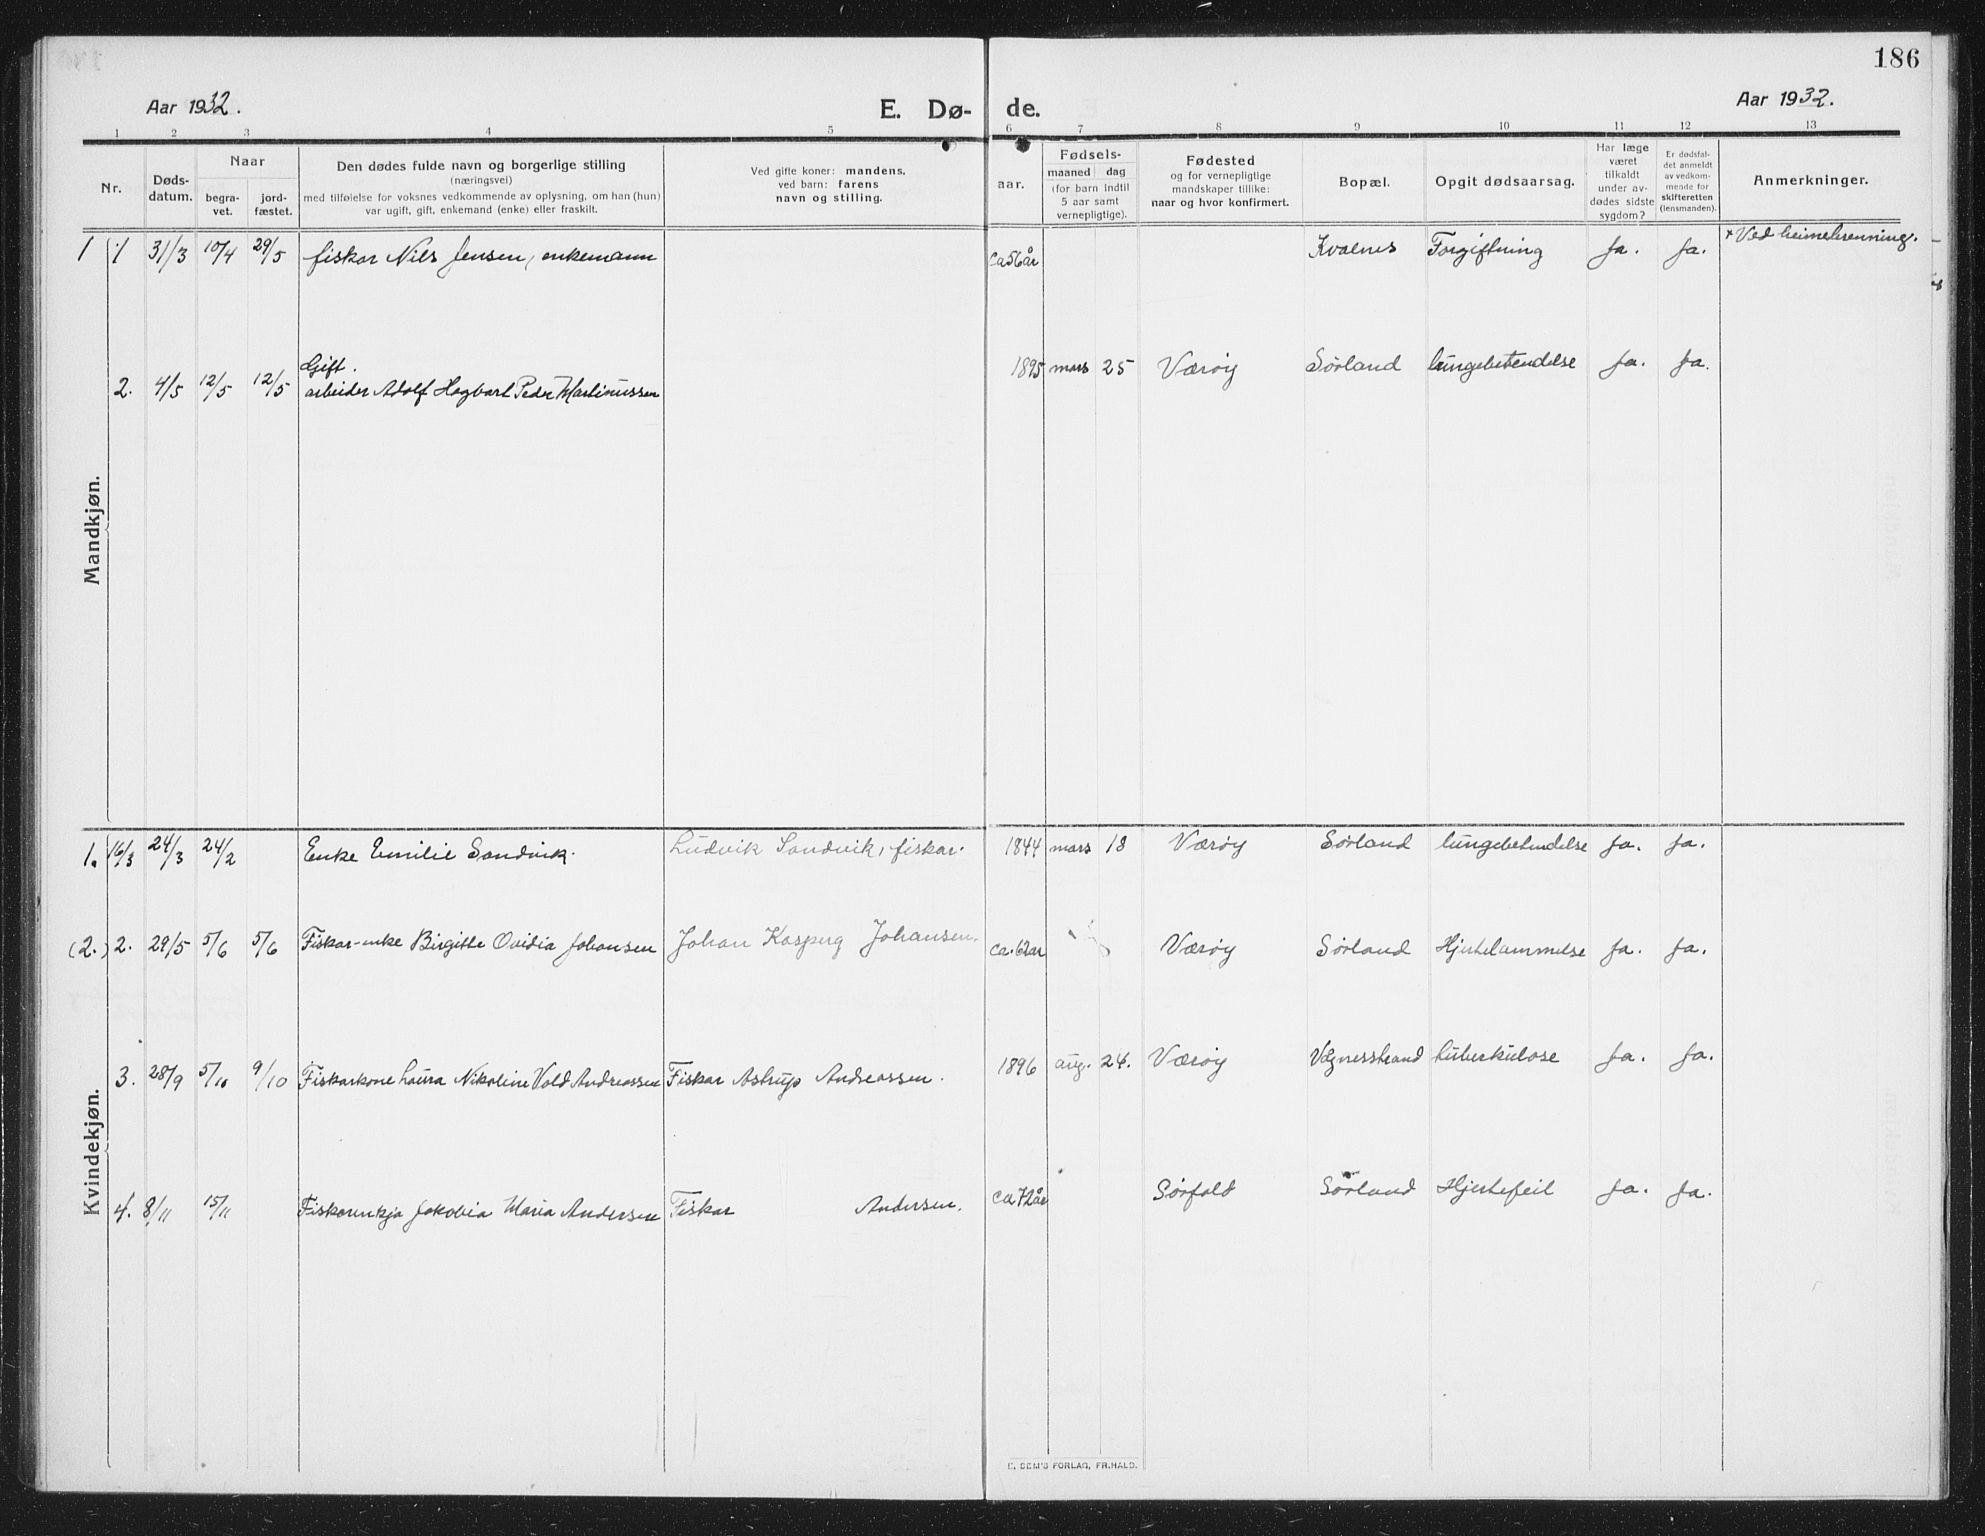 186
Aar 1932.
E. Dø-
de.
Aar 1932.
1 2 3 4 5 6 7 8 9 10 11 12 13
Nr.
Døds-
datum.
Naar
begra-
vet.
jord-
fæstet.
Den dødes fulde navn og borgerlige stilling
(næringsvei)
med tilføielse for voksnes vedkommende av oplysning, om han (hun)
var ugift, gift, enkemand (enke) eller fraskilt.
Ved gifte koner: mandens,
ved barn: farens
navn og stilling.
Fødsels-
aar.
maaned dag
(for barn indtil
5 aar samt
vernepligtige).
Fødested
og for vernepligtige
mandskaper tillike:
naar og hvor konfirmert.
Bopæl.
Opgit dødsaarsag.
Har læge
været
tilkaldt
under av-
dødes sidste
sygdom?
Er dødsfal-
det anmeldt
av vedkom-
mende for
skifteretten
(lensmanden).
Anmerkninger.
Mandkjøn.
1 1 31/3 10/4 29/5 fiskar Nils Jensen, enkemann ca 56 år Kvalnes Forgiftning Ja. Ja. + Ved heimebrenning.
Gift.
2. 4/5 12/5 12/5 arbeider Adolf Hagbart Peder Martinussen 1895 mars 25 Værøy Sørland lungebetendelse Ja. Ja.
Kvindekjøn.
1. 16/3 24/3 24/2 Enke Emilie Sandvik. Ludvik Sandvik, fiskar. 1844 mars 18 Værøy Sørland lungebetendelse Ja. Ja.
(2.) 2. 29/5 5/6 5/6 Fiskar-enke Birgitte Ovidia Johansen Johan Kasperg Johansen. ca. 62 år Værøy Sørland Hjertelammelse Ja. Ja.
3. 28/9 5/10 9/10 Fiskarkone Laura Nikoline Vold Andreassen Fiskar Astrup Andreassen. 1896 aug. 24. Værøy Vågnesstrand tuberkulose Ja. Ja.
4. 8/11 15/11 Fiskarenkja Jakobia Maria Andersen Fiskar Andersen. ca 72 år Sørfold Sørland Hjertefeil Ja. Ja.
E. SEM'S FORLAG, FR.HALD.